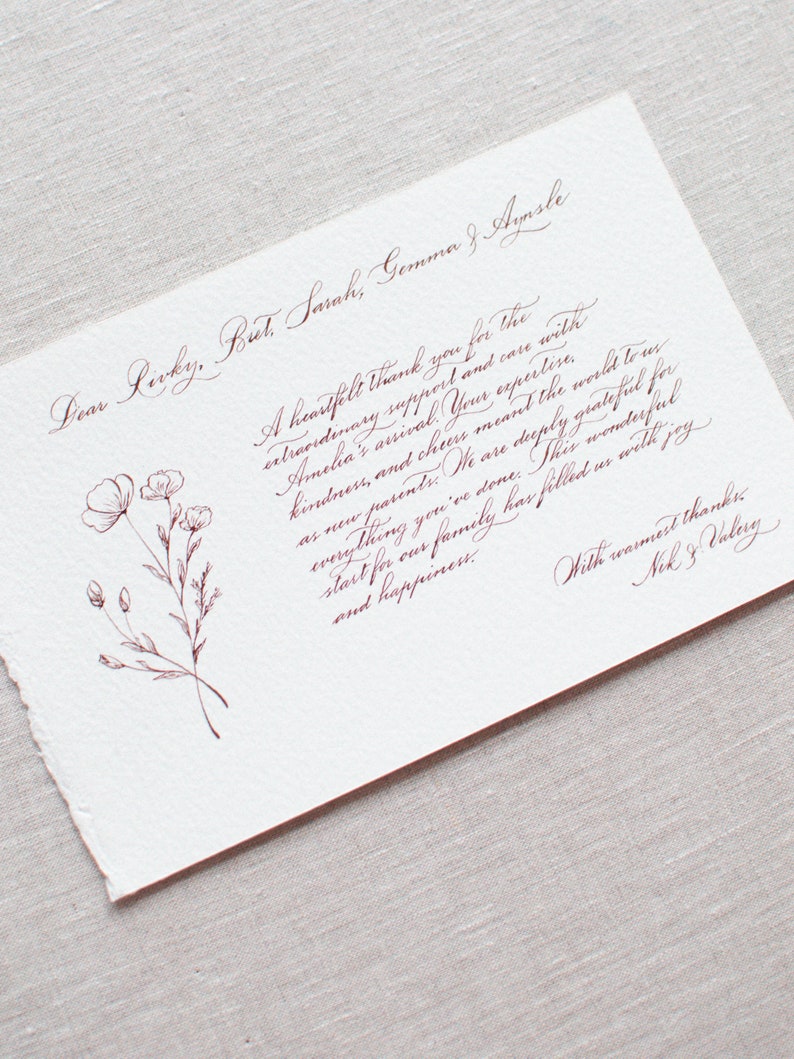 Dear Rivky, Bret, Sarah, Gemma & Aynsle
A heartfelt thank you for the
extraordinary support and care with
Amelia's arrival. Your expertise,
kindness, and cheers meant the world to us
as new parents. We are deeply grateful for
everything you've done. This wonderful
start for our family has filled us with joy
and happiness.
With warmest thanks,
Nik & Valery